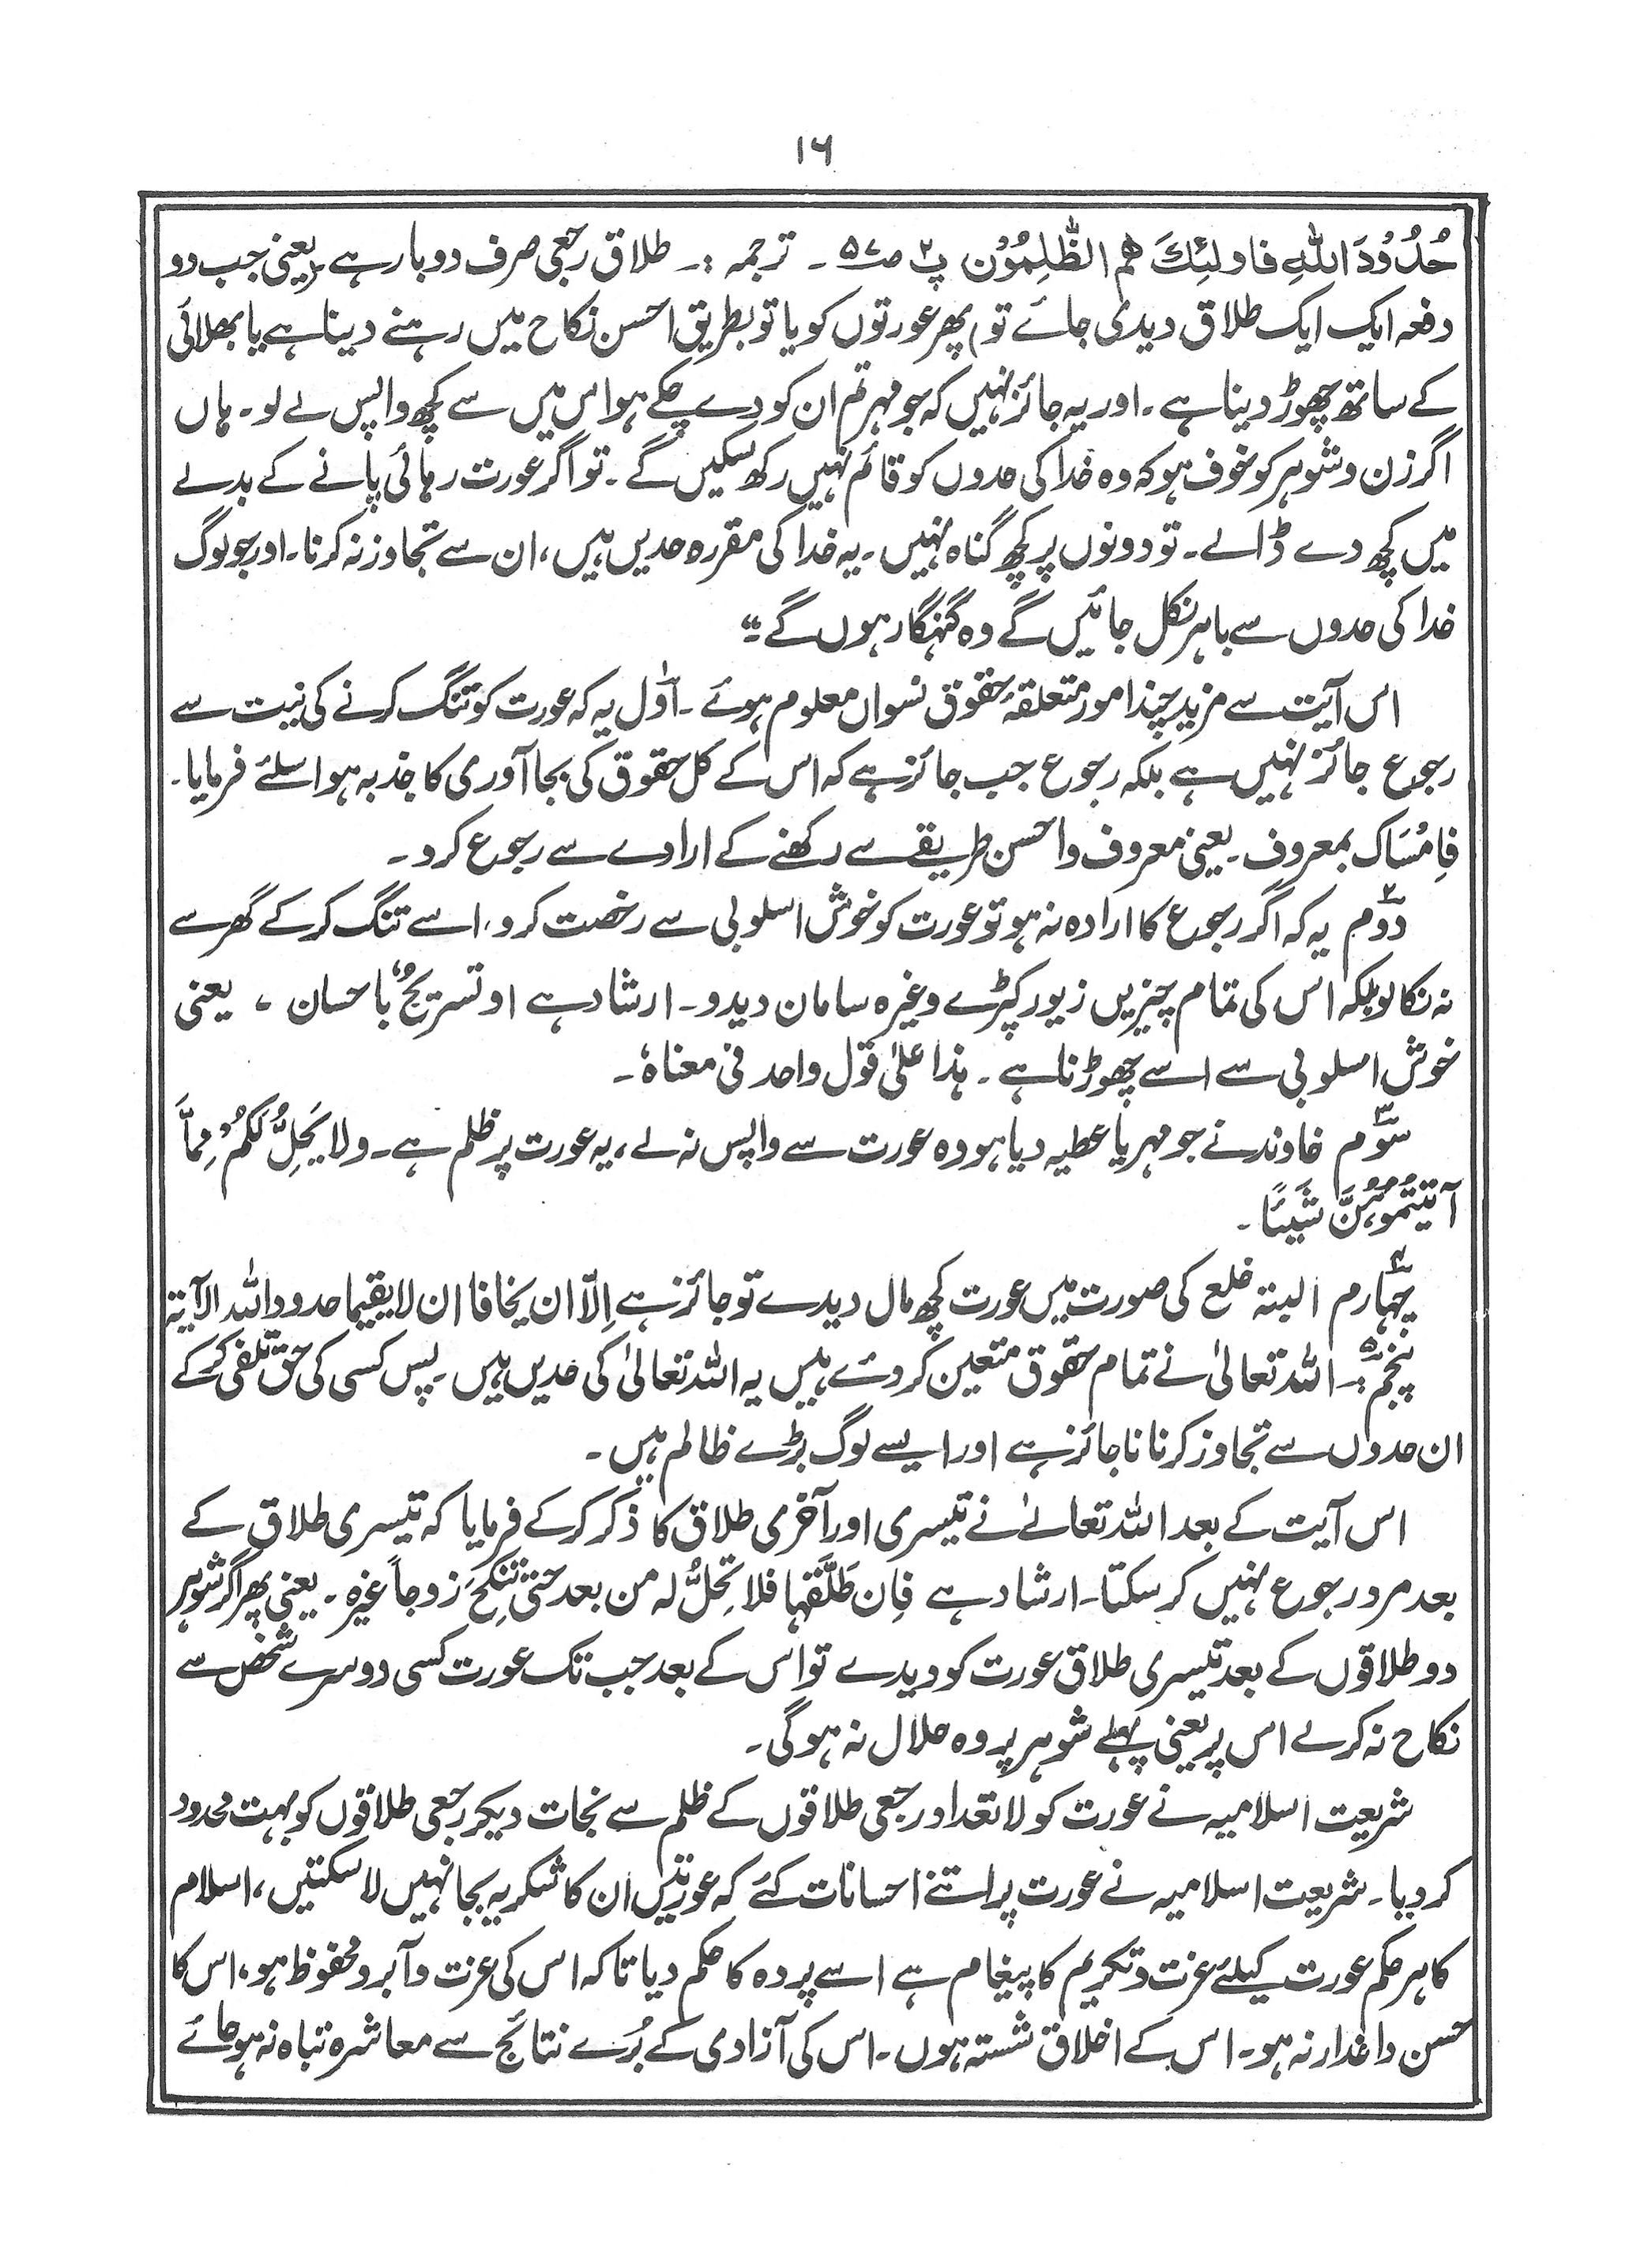 ۱۶
حُدُوْدَ اللّٰہِ فاولٰئِكَ ھُم الظّٰلِمُوْن پ۲ ص۵۷ ۔ ترجمہ :۔ طلاق رجعی صرف دو بار ہے (یعنی جب دو
دفعہ ایک ایک طلاق دیدی جائے تو) پھر عورتوں کو یا تو بطریق احسن نکاح میں رہنے دینا ہے یا بھلائی
کے ساتھ چھوڑ دینا ہے ۔ اور یہ جائز نہیں کہ جو مہر تم ان کو دے چکے ہو اس میں سے کچھ واپس لے لو ۔ ہاں
اگر زن و شوہر کو خوف ہو کہ وہ خدا کی حدوں کو قائم نہیں رکھ سکیں گے ۔ تو اگر عورت رہائی پانے کے بدلے
میں کچھ دے ڈالے ۔ تو دونوں پر کچھ گناہ نہیں ۔ یہ خدا کی مقررہ حدیں ہیں ، ان سے تجاوز نہ کرنا ۔ اور جو لوگ
خدا کی حدوں سے باہر نکل جائیں گے وہ گنہگار ہوں گے ۔"
اس آیت سے مزید چند امور متعلقۂ حقوق نسواں معلوم ہوئے ۔ اوّل یہ کہ عورت کو تنگ کرنے کی نیت سے
رجوع جائز نہیں ہے بلکہ رجوع جب جائز ہے کہ اس کے کل حقوق کی بجا آوری کا جذبہ ہو اسلئے فرمایا ۔
فاِمْسَاک بمعروف ۔ یعنی معروف و احسن طریقے سے رکھنے کے ارادے سے رجوع کرو ۔
دوّم۲ یہ کہ اگر رجوع کا ارادہ نہ ہو تو عورت کو خوش اسلوبی سے رخصت کرو ، اسے تنگ کر کے گھر سے
نہ نکالو بلکہ اس کی تمام چیزیں زیور کپڑے وغیرہ سامان دیدو ۔ ارشاد ہے او تسریحٌ باحسان ، یعنی
خوش اسلوبی سے اسے چھوڑنا ہے ۔ ہٰذا علیٰ قول واحد فی معناہٗ ۔
سوّم۳ خاوند نے جو مہر یا عطیہ دیا ہو وہ عورت سے واپس نہ لے ، یہ عورت پر ظلم ہے ۔ ولا یَحِلُّ لَکُمْ مِمَّا
آتَیْتُمُوْہُنَّ شَیْئًا ۔
چہارم۴ البتہ خلع کی صورت میں عورت کچھ مال دیدے تو جائز ہے اِلّا ان یخافا ان لا یقیما حدود اللہ الآیۃ
پنجم۵ :۔ اللہ تعالیٰ نے تمام حقوق متعین کر دئے ہیں یہ اللہ تعالیٰ کی حدیں ہیں ۔ پس کسی کی حق تلفی کر کے
ان حدوں سے تجاوز کرنا ناجائز ہے اور ایسے لوگ بڑے ظالم ہیں ۔
اس آیت کے بعد اللہ تعالےٰ نے تیسری اور آخری طلاق کا ذکر کر کے فرمایا کہ تیسری طلاق کے
بعد مرد رجوع نہیں کر سکتا ۔ ارشاد ہے فاِن طَلَّقَہا فلا تَحِلُّ لہ من بعد حتّٰی تنکِحَ زوجاً غیرہ ۔ یعنی پھر اگر شوہر
دو طلاقوں کے بعد تیسری طلاق عورت کو دیدے تو اس کے بعد جب تک عورت کسی دوسرے شخص سے
نکاح نہ کر لے اس پر یعنی پہلے شوہر پر وہ حلال نہ ہو گی ۔
شریعت اسلامیہ نے عورت کو لا تعداد رجعی طلاقوں کے ظلم سے نجات دیکر رجعی طلاقوں کو بہت محدود
کر دیا ۔ شریعت اسلامیہ نے عورت پر اتنے احسانات کئے کہ عورتیں ان کا شکریہ بجا نہیں لا سکتیں ، اسلام
کا ہر حکم عورت کیلئے عزت و تکریم کا پیغام ہے اسے پردہ کا حکم دیا تا کہ اس کی عزت و آبرو محفوظ ہو ، اس کا
حسن داغدار نہ ہو ۔ اس کے اخلاق شستہ ہوں ۔ اس کی آزادی کے بُرے نتائج سے معاشرہ تباہ نہ ہو جائے